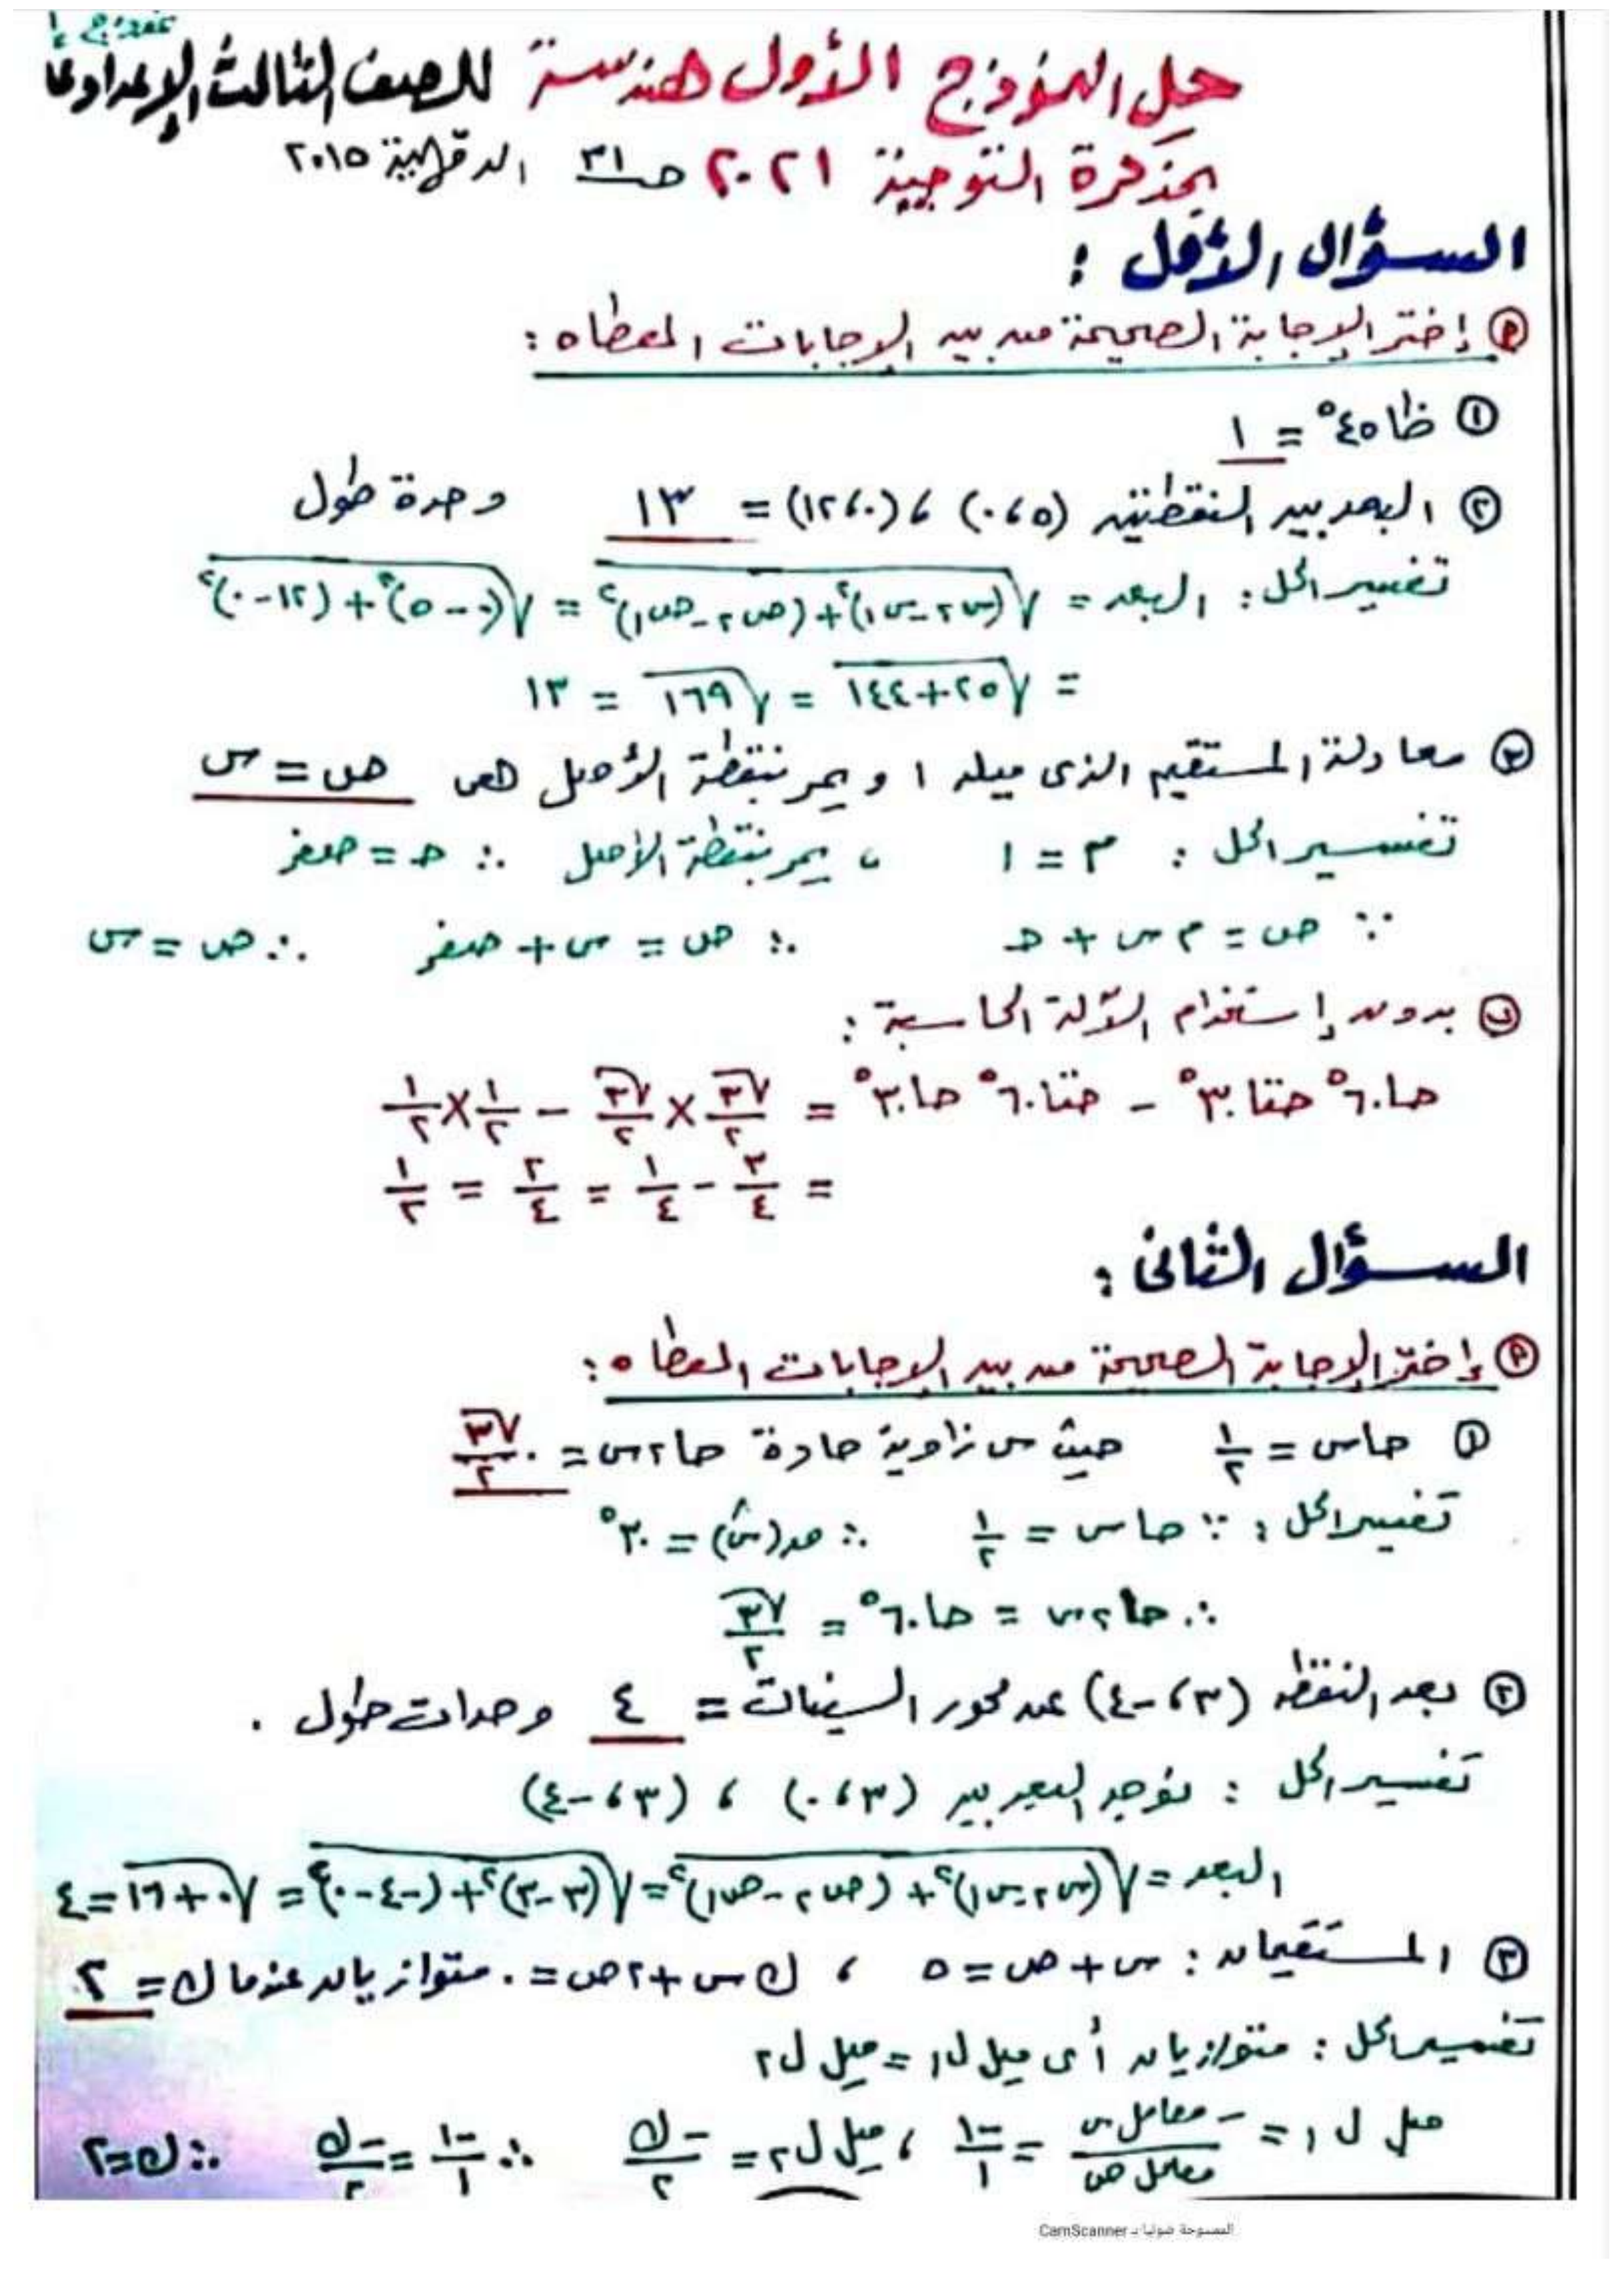 نموذج ١
حل النموذج الأول هندسة للصف الثالث الإعدادى
بمذكرة التوجية ٢٠٢١ صـ ٣١ الدقهلية ٢٠١٥
السؤال الأول :
(أ) إختر الإجابة الصحيحة من بين الإجابات المعطاه :
(١) ظا ٤٥° = ١
(٢) البعد بين النقطتين (٥ ، ٠) ، (٠ ، ١٢) = ١٣ وحدة طول
تفسير الحل : البعد = √((س٢ - س١)² + (ص٢ - ص١)²) = √((٠ - ٥)² + (١٢ - ٠)²)
= √(٢٥ + ١٤٤) = √١٦٩ = ١٣
(٣) معادلة المستقيم الذى ميله ١ و يمر بنقطة الأصل هى ص = س
تفسير الحل : م = ١ ، يمر بنقطة الأصل ∴ حـ = صفر
∵ ص = م س + حـ ∴ ص = س + صفر ∴ ص = س
(ب) بدون إستخدام الآلة الحاسبة :
حا ٦٠° حتا ٣٠° - حتا ٦٠° حا ٣٠° = √٣/٢ × √٣/٢ - ١/٢ × ١/٢
= ٣/٤ - ١/٤ = ٢/٤ = ١/٢
السؤال الثانى :
(أ) إختر الإجابة الصحيحة من بين الإجابات المعطاه :
(١) حاس = ١/٢ حيث س زاوية حادة حا٢س = √٣/٢
تفسير الحل : ∵ حاس = ١/٢ ∴ ق(س) = ٣٠°
∴ حا٢س = حا ٦٠° = √٣/٢
(٢) بعد النقطه (٣ ، -٤) عن محور السينات = ٤ وحدات طول .
تفسير الحل : نوجد البعد بين (٣ ، ٠) ، (٣ ، -٤)
البعد = √((س٢ - س١)² + (ص٢ - ص١)²) = √((٣ - ٣)² + (-٤ - ٠)²) = √(٠ + ١٦) = ٤
(٣) المستقيمان : س + ص = ٥ ، ك س + ٢ص = ٠ متوازيان عندما ك = ٢
تفسير الحل : متوازيان أى ميل ل١ = ميل ل٢
ميل ل١ = -معامل س/معامل ص = -١/١ ، ميل ل٢ = -ك/٢ ∴ -١/١ = -ك/٢ ∴ ك = ٢
الممسوحة ضوئيا بـ CamScanner